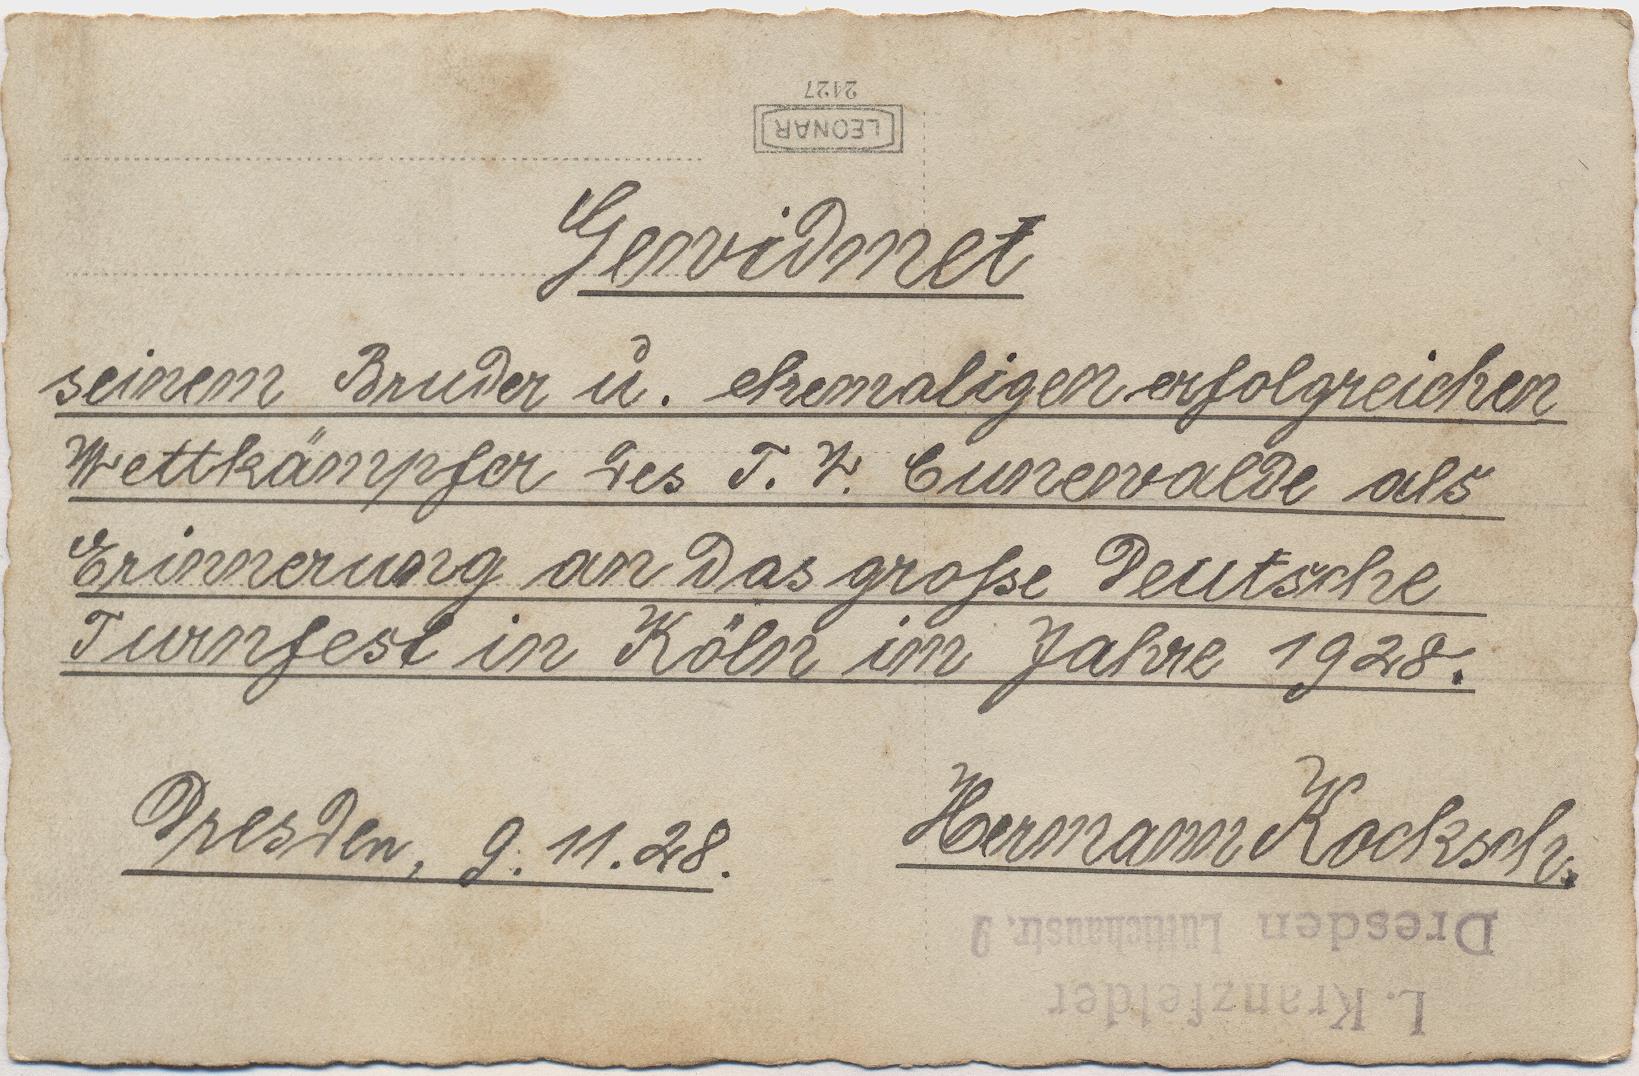 2427
LEONAR
Gewidmet
seinem Bruder u. ehemaligen erfolgreichen
Wettkämpfer des T. V. Cunewalde als
Erinnerung an das große Deutsche
Turnfest in Köln im Jahre 1928.
Dresden, 9. 11. 28.
Hermann Kocksch.
Dresden Lüttichaustr. 9
L. Kranzfelder